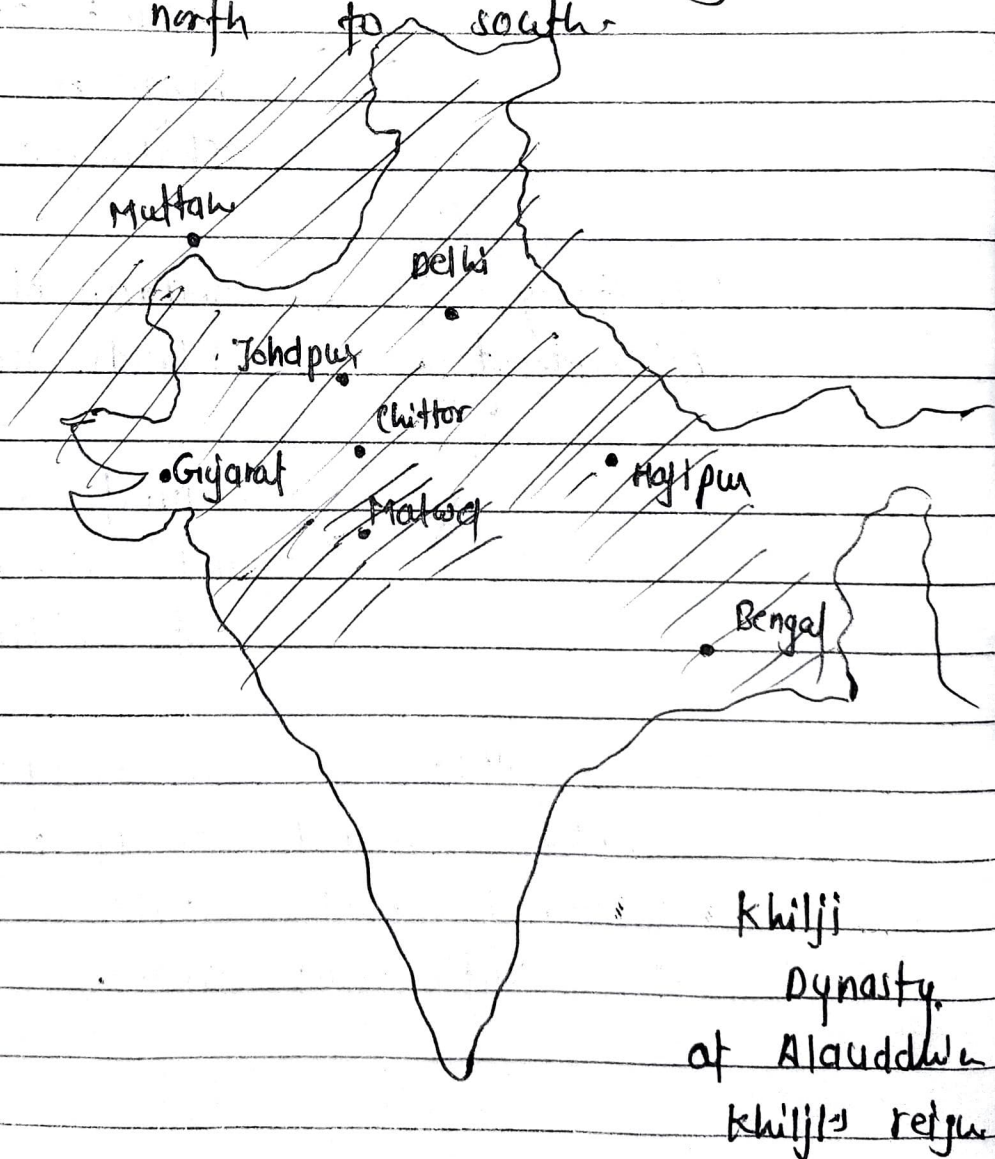 north to south.
Multan
Delhi
Johdpur
Chittor
Gujarat
Hajipur
Malwa
Bengal
Khilji
Dynasty.
at Alauddin
Khilji's reign